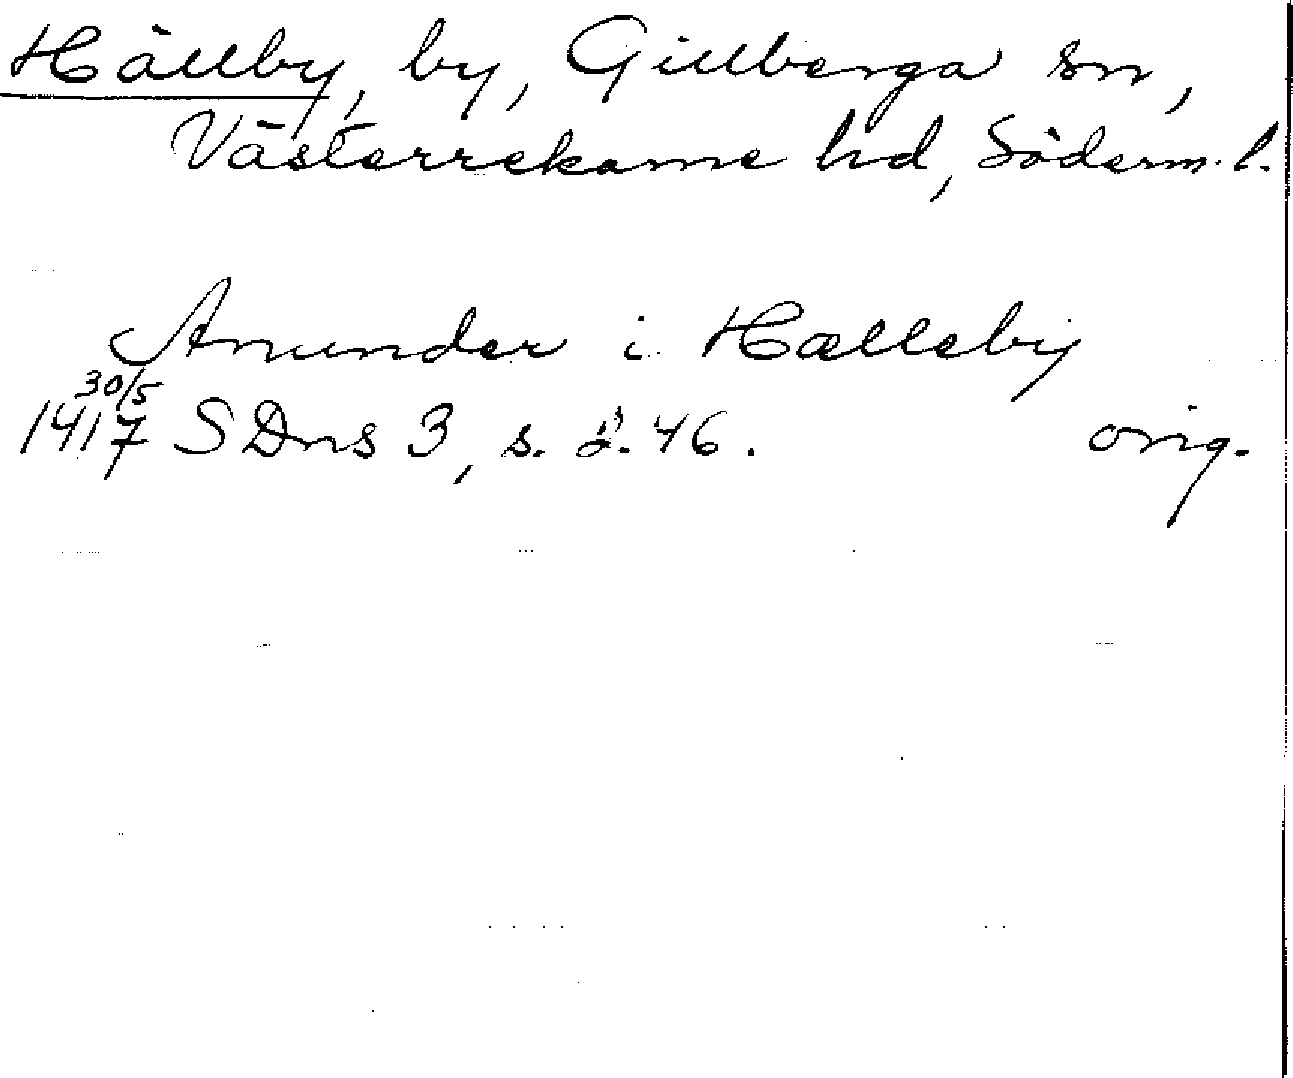 Hällby, by, Gillberga sn,
Västerrekarne hd, Söderm. l.
Anunder i Hælleby
30/5
1417 SDns 3, s. 246. orig.